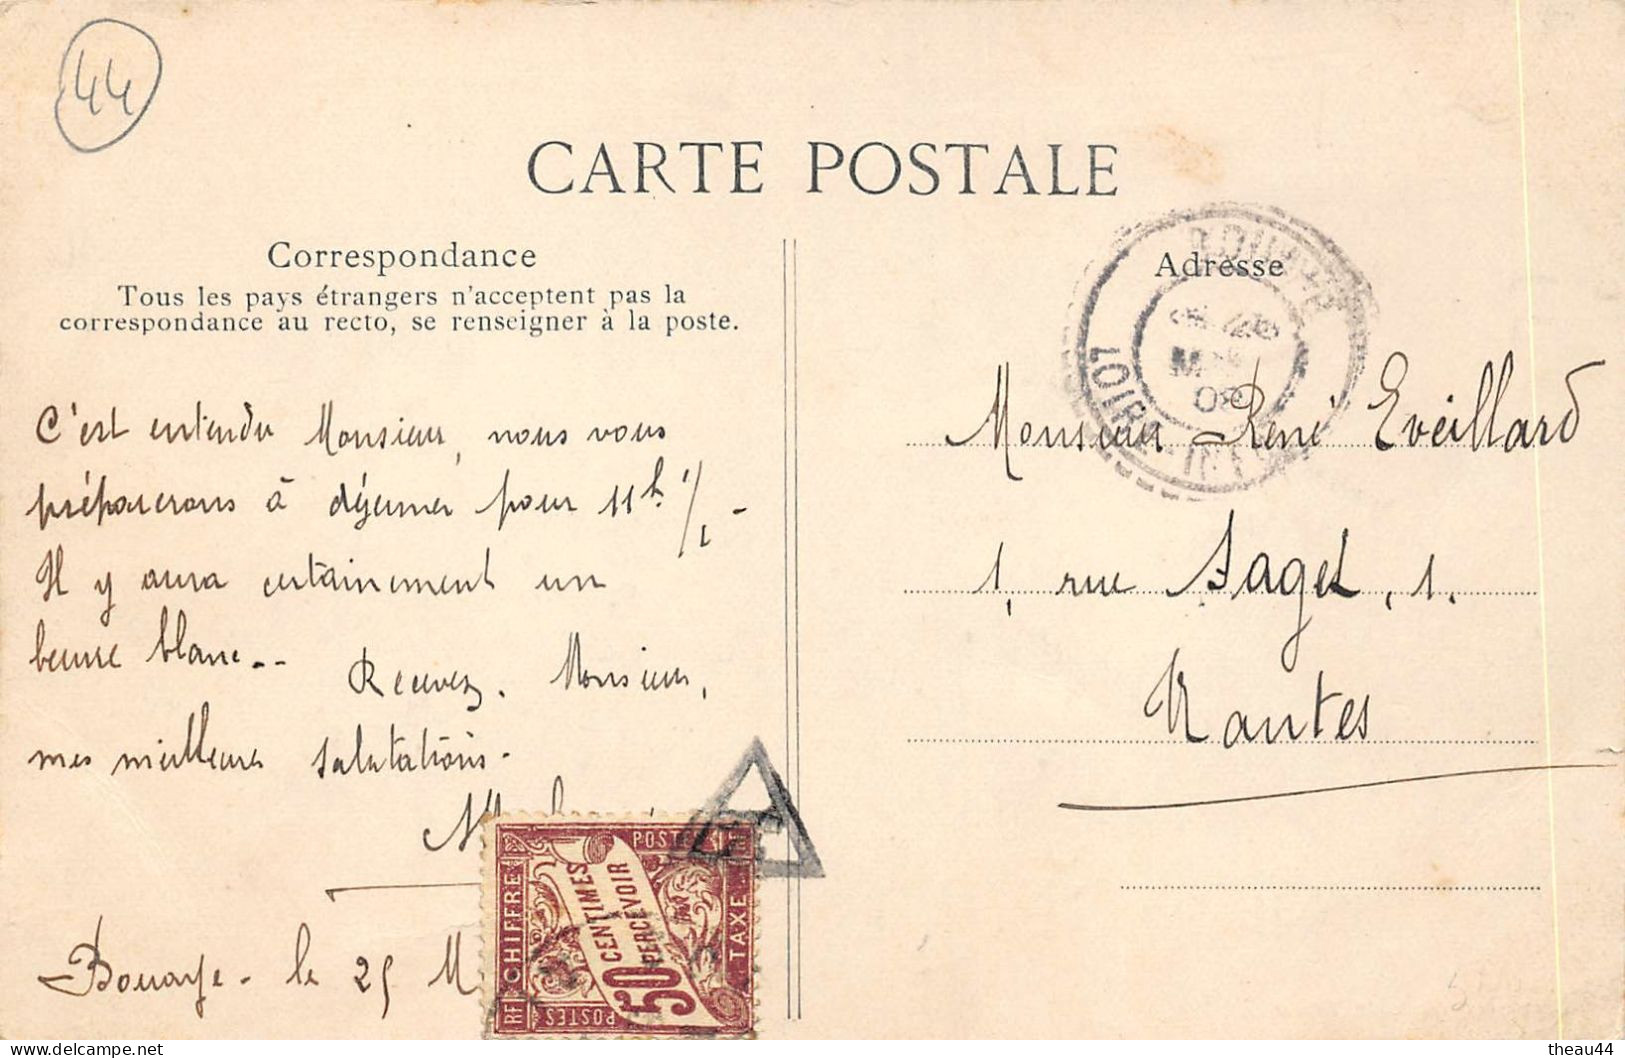 44
CARTE POSTALE
Correspondance
Tous les pays étrangers n'acceptent pas la
correspondance au recto, se renseigner à la poste.
C'est entendu Monsieur, nous vous
préparerons à déjeuner pour 11h 1/2 -
Il y aura certainement un
beurre blanc..
Recevez. Monsieur,
mes meilleures salutations.
Bouaye - le 25 M
Adresse
LOIRE-INF
08
Monsieur René Eveillard
1, rue Saget, 1.
Nantes
POSTES
CHIFFRE
TAXE
50 CENTIMES
PERCEVOIR
RF
POSTES
theau44